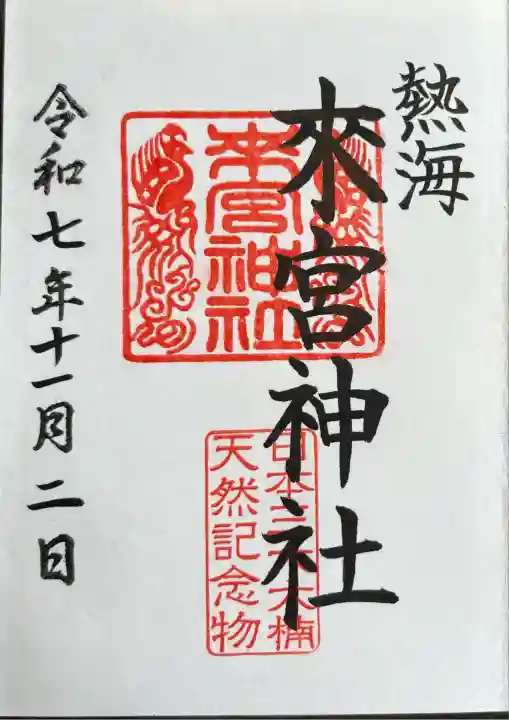 熱海
來宮神社
來宮神社
日本三大大楠
天然記念物
令和七年十一月二日